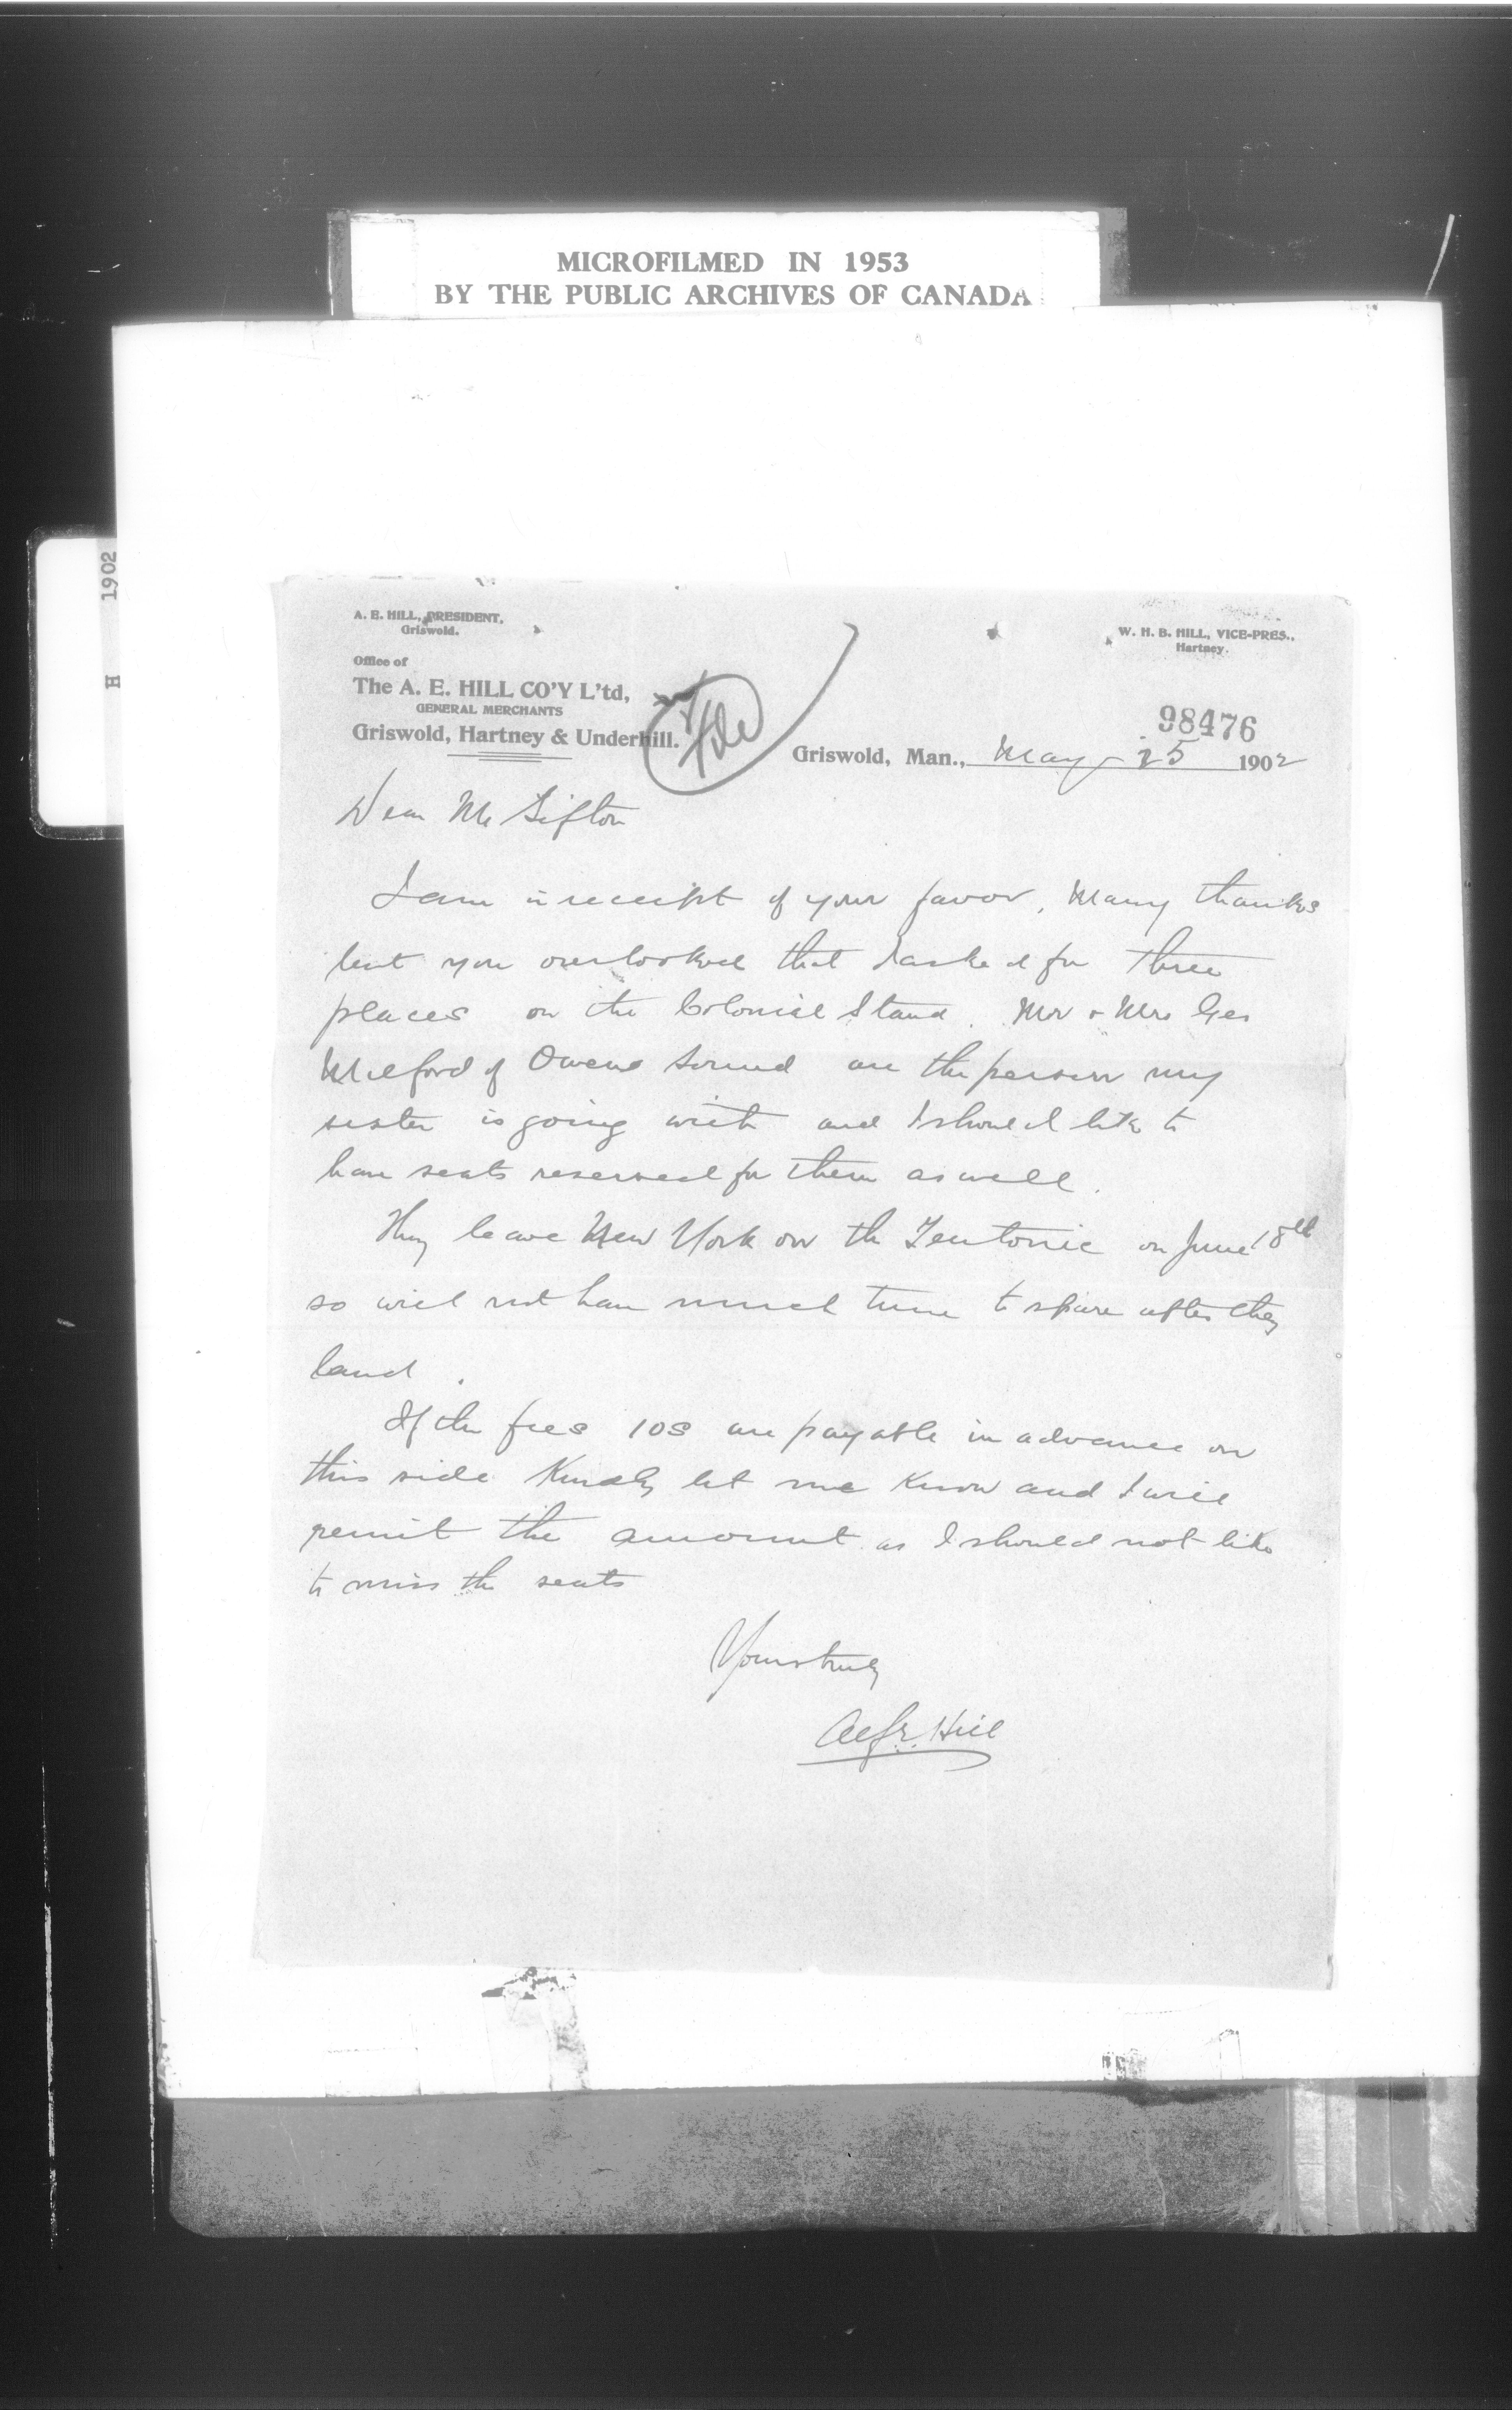 MICROFILMED IN 1953
BY THE PUBLIC ARCHIVES OF CANADA
H 1902
A. E. HILL, PRESIDENT,
Griswold.
W. H. B. HILL, VICE-PRES.,
Hartney.
Office of
The A. E. HILL CO'Y L'td,
GENERAL MERCHANTS
Griswold, Hartney & Underhill.
File
98476
Griswold, Man., May 25 1902
Dear Mr Sifton
I am in receipt of your favor, Many thanks
but you overlooked that I asked for three
places on the Colonial Stand. Mr & Mrs Geo
of Owens Sound are the person my
sister is going with and I should like to
have seats reserved for them as well.
They leave New York on the Teutonic on June 18th
so will not have much time to spare after they
land.
If the fees 10s are payable in advance on
this side Kindly let me know and I will
remit the amount as I should not like
to miss the seats
Yours truly
Alfr. Hill